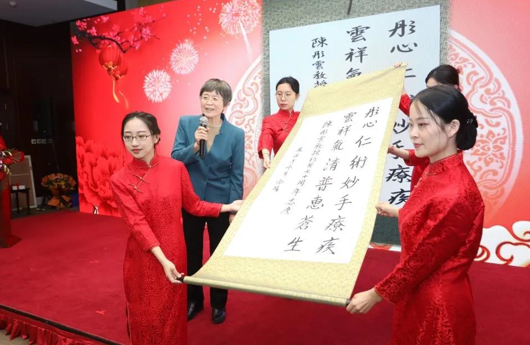 彤心仁術妙手療疾
雲祥氣清普惠蒼生
陳彤雲教授
周年志慶
彤心
雲祥氣
陳彤雲教授